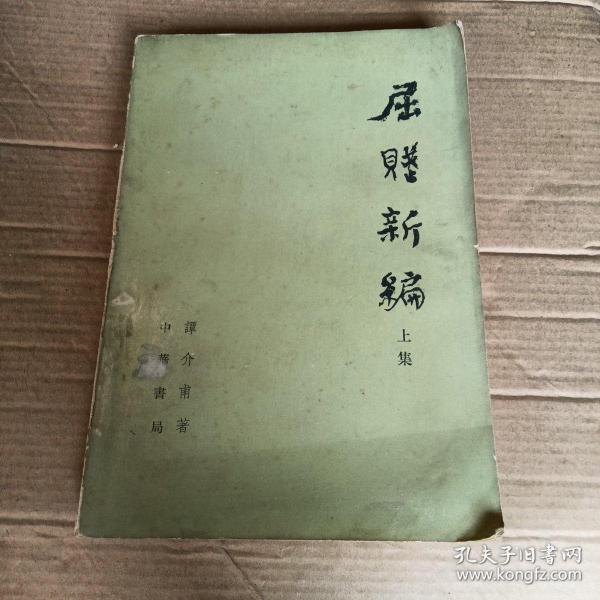 屈賦新編
上集
譚介甫著
中華書局
孔夫子旧书网
www.kongfz.com